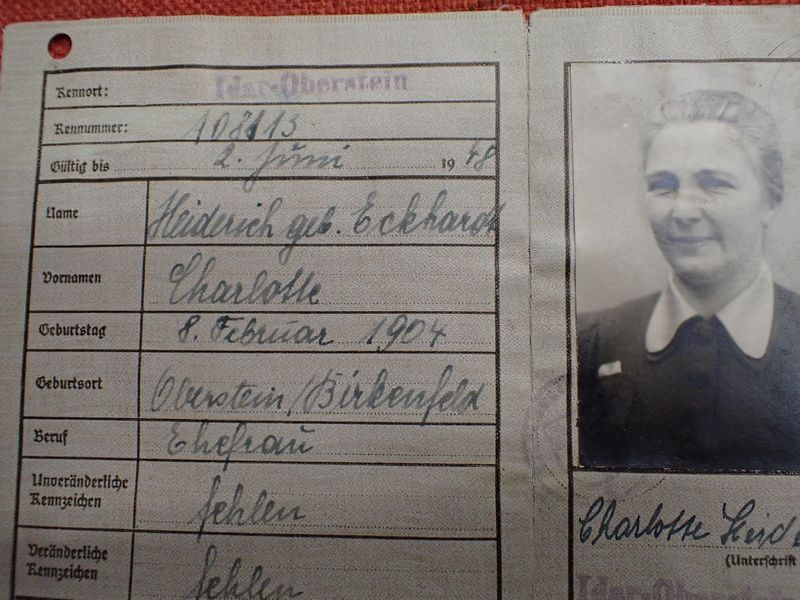 Kennort: Idar-Oberstein
Kennummer: 108113
Gültig bis 2. Juni 1948
Name Heiderich geb. Eckhardt
Vornamen Charlotte
Geburtstag 8. Februar 1904
Geburtsort Oberstein/Birkenfeld
Beruf Ehefrau
Unveränderliche Kennzeichen fehlen
Veränderliche Kennzeichen fehlen
Charlotte Heid
(Unterschrift
Idar-Oberstein